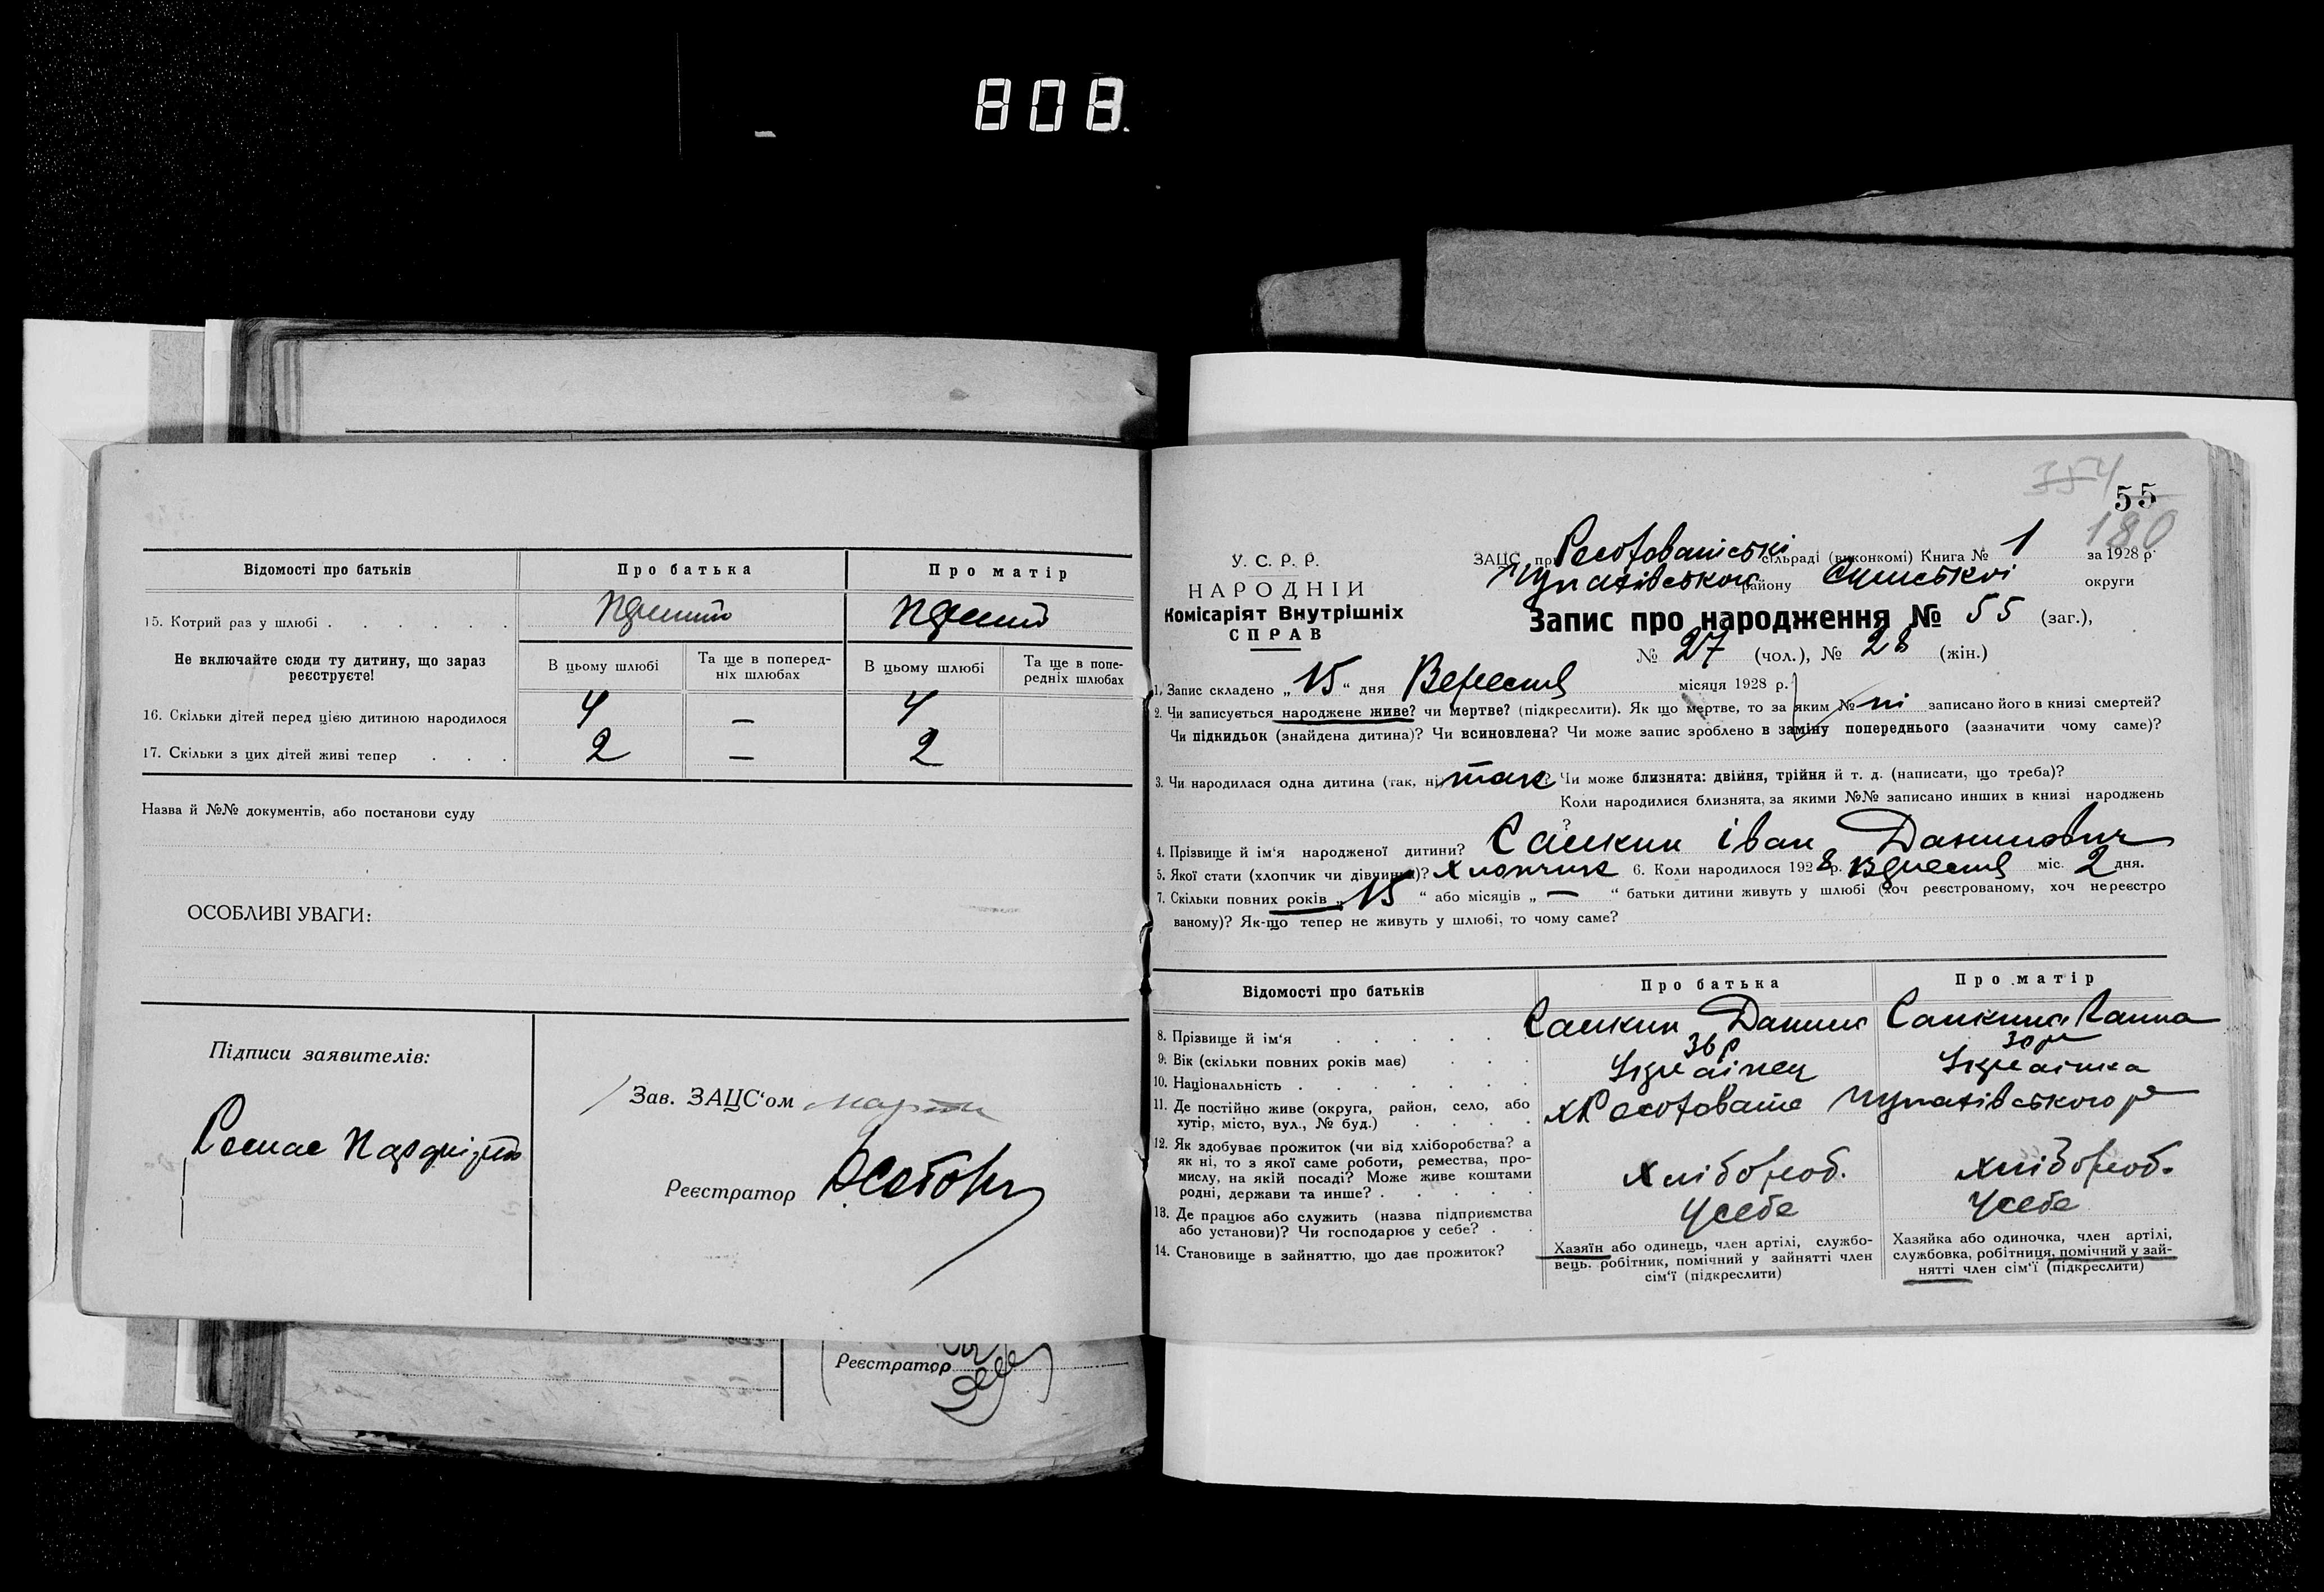 808.
Відомості про батьків
Про батька
Про матір
15. Котрий раз у шлюбі
Не включайте сюди ту дитину, що зараз реєструєте!
В цьому шлюбі
Та ще в поперед-
ніх шлюбах
В цьому шлюбі
Та ще в попе-
редніх шлюбах
16. Скільки дітей перед цією дитиною народилося
4
—
4
17. Скільки з цих дітей живі тепер
2
—
2
Назва й №№ документів, або постанови суду
ОСОБЛИВІ УВАГИ:
Підписи заявителів:
Зав. ЗАЦС‘ом
Реєстратор
Реєстратор
354
55
180
У. С. Р. Р.
НАРОДНІЙ
Комісаріят Внутрішніх
СПРАВ
ЗАЦС при сільраді (виконкомі) Книга № 1 за 1928 р.
району Сумської округи
Запис про народження № 55 (заг.),
№ 27 (чол.), № 28 (жін.)
1. Запис складено „ 15 “ дня Вересня місяця 1928 р.
2. Чи записується народжене живе? чи мертве? (підкреслити). Як що мертве, то за яким № ні записано його в книзі смертей?
Чи підкидьок (знайдена дитина)? Чи всиновлена? Чи може запис зроблено в заміну попереднього (зазначити чому саме)?
3. Чи народилася одна дитина (так, ні) так? Чи може близнята: двійня, трійня й т. д. (написати, що треба)?
Коли народилися близнята, за якими №№ записано инших в книзі народжень
?
4. Прізвище й ім‘я народженої дитини? Сашкин Іван Данилович
5. Якої стати (хлопчик чи дівчинка)? Хлопчик 6. Коли народилося 1928 р. Вересня міс. 2 дня.
7. Скільки повних років „ 15 “ або місяців „ — “ батьки дитини живуть у шлюбі (хоч реєстрованому, хоч нереєстро
ваному)? Як-що тепер не живуть у шлюбі, то чому саме?
Відомості про батьків
Про батька
Про матір
8. Прізвище й ім‘я
Сашкин Данило
Сашкина Ганна
9. Вік (скільки повних років має)
36 р
10. Національність
Українец
Українка
11. Де постійно живе (округа, район, село, або
хутір, місто, вул., № буд.)
12. Як здобуває прожиток (чи від хліборобства? а
як ні, то з якої саме роботи, ремества, про-
мислу, на якій посаді? Може живе коштами
родні, держави та инше?
Хлібороб.
хлібороб.
13. Де працює або служить (назва підприємства
або установи)? Чи господарює у себе?
У себе
У себе
14. Становище в зайняттю, що дає прожиток?
Хазяїн або одинець, член артілі, службо-
вець. робітник, помічний у зайнятті член
сім‘ї (підкреслити)
Хазяйка або одиночка, член артілі,
службовка, робітниця, помічний у зай-
нятті член сім‘ї (підкреслити)